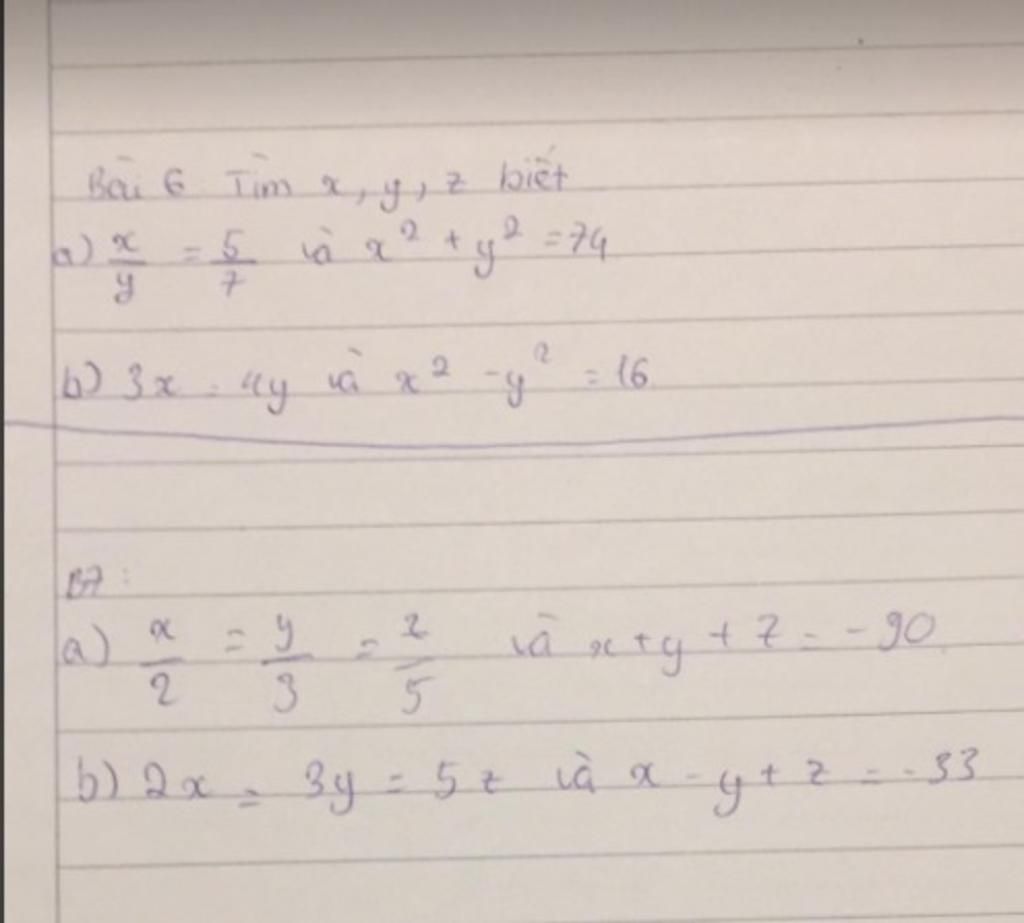 Bài 6 Tìm x, y, z biết
a) x/y = 5/7 và x² + y² = 74
b) 3x = 4y và x² - y² = 16
B7:
a) x/2 = y/3 = z/5 và x + y + z = -90
b) 2x = 3y = 5z và x - y + z = -33